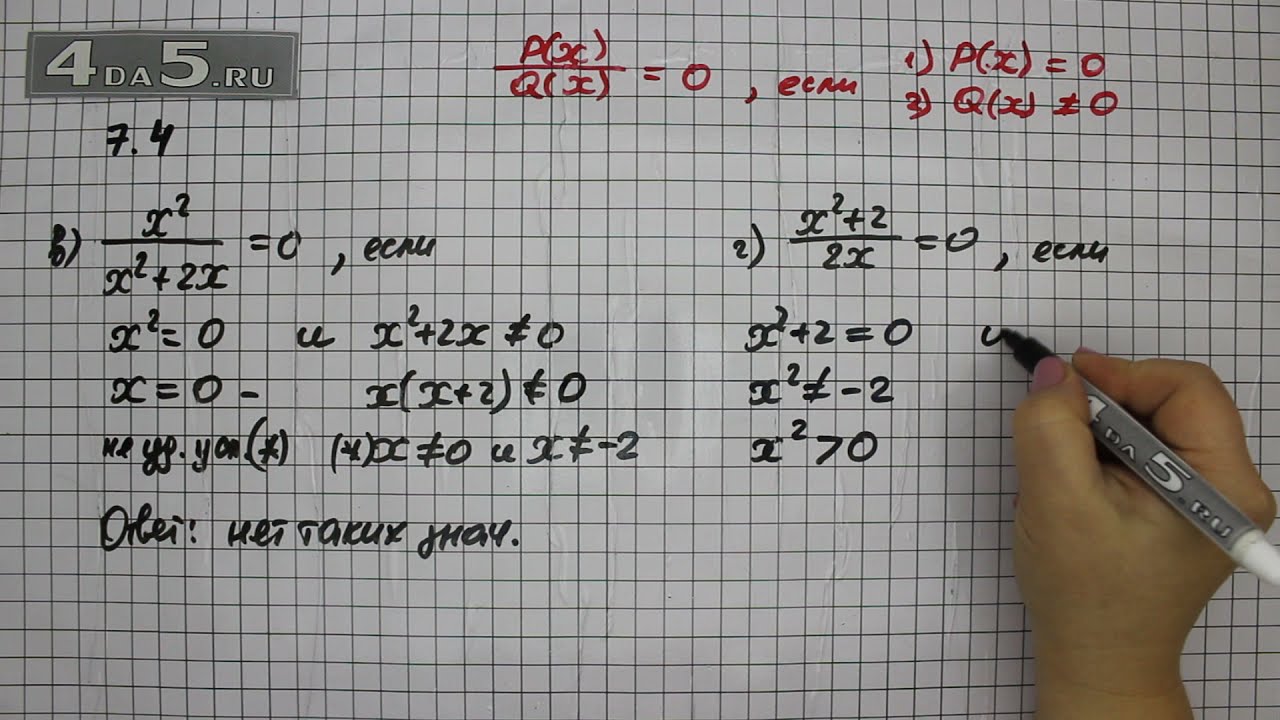 4DA5.RU
P(x)/Q(x) = 0, если
1) P(x) = 0
2) Q(x) ≠ 0
7.4
в) x²/(x²+2x) = 0, если
x² = 0 и x²+2x ≠ 0
x = 0 - x(x+2) ≠ 0
не уд. усл.(*) (*) x ≠ 0 и x ≠ -2
Ответ: нет таких знач.
г) (x²+2)/2x = 0, если
x²+2 = 0 и
x² ≠ -2
x² > 0
4DA5.RU